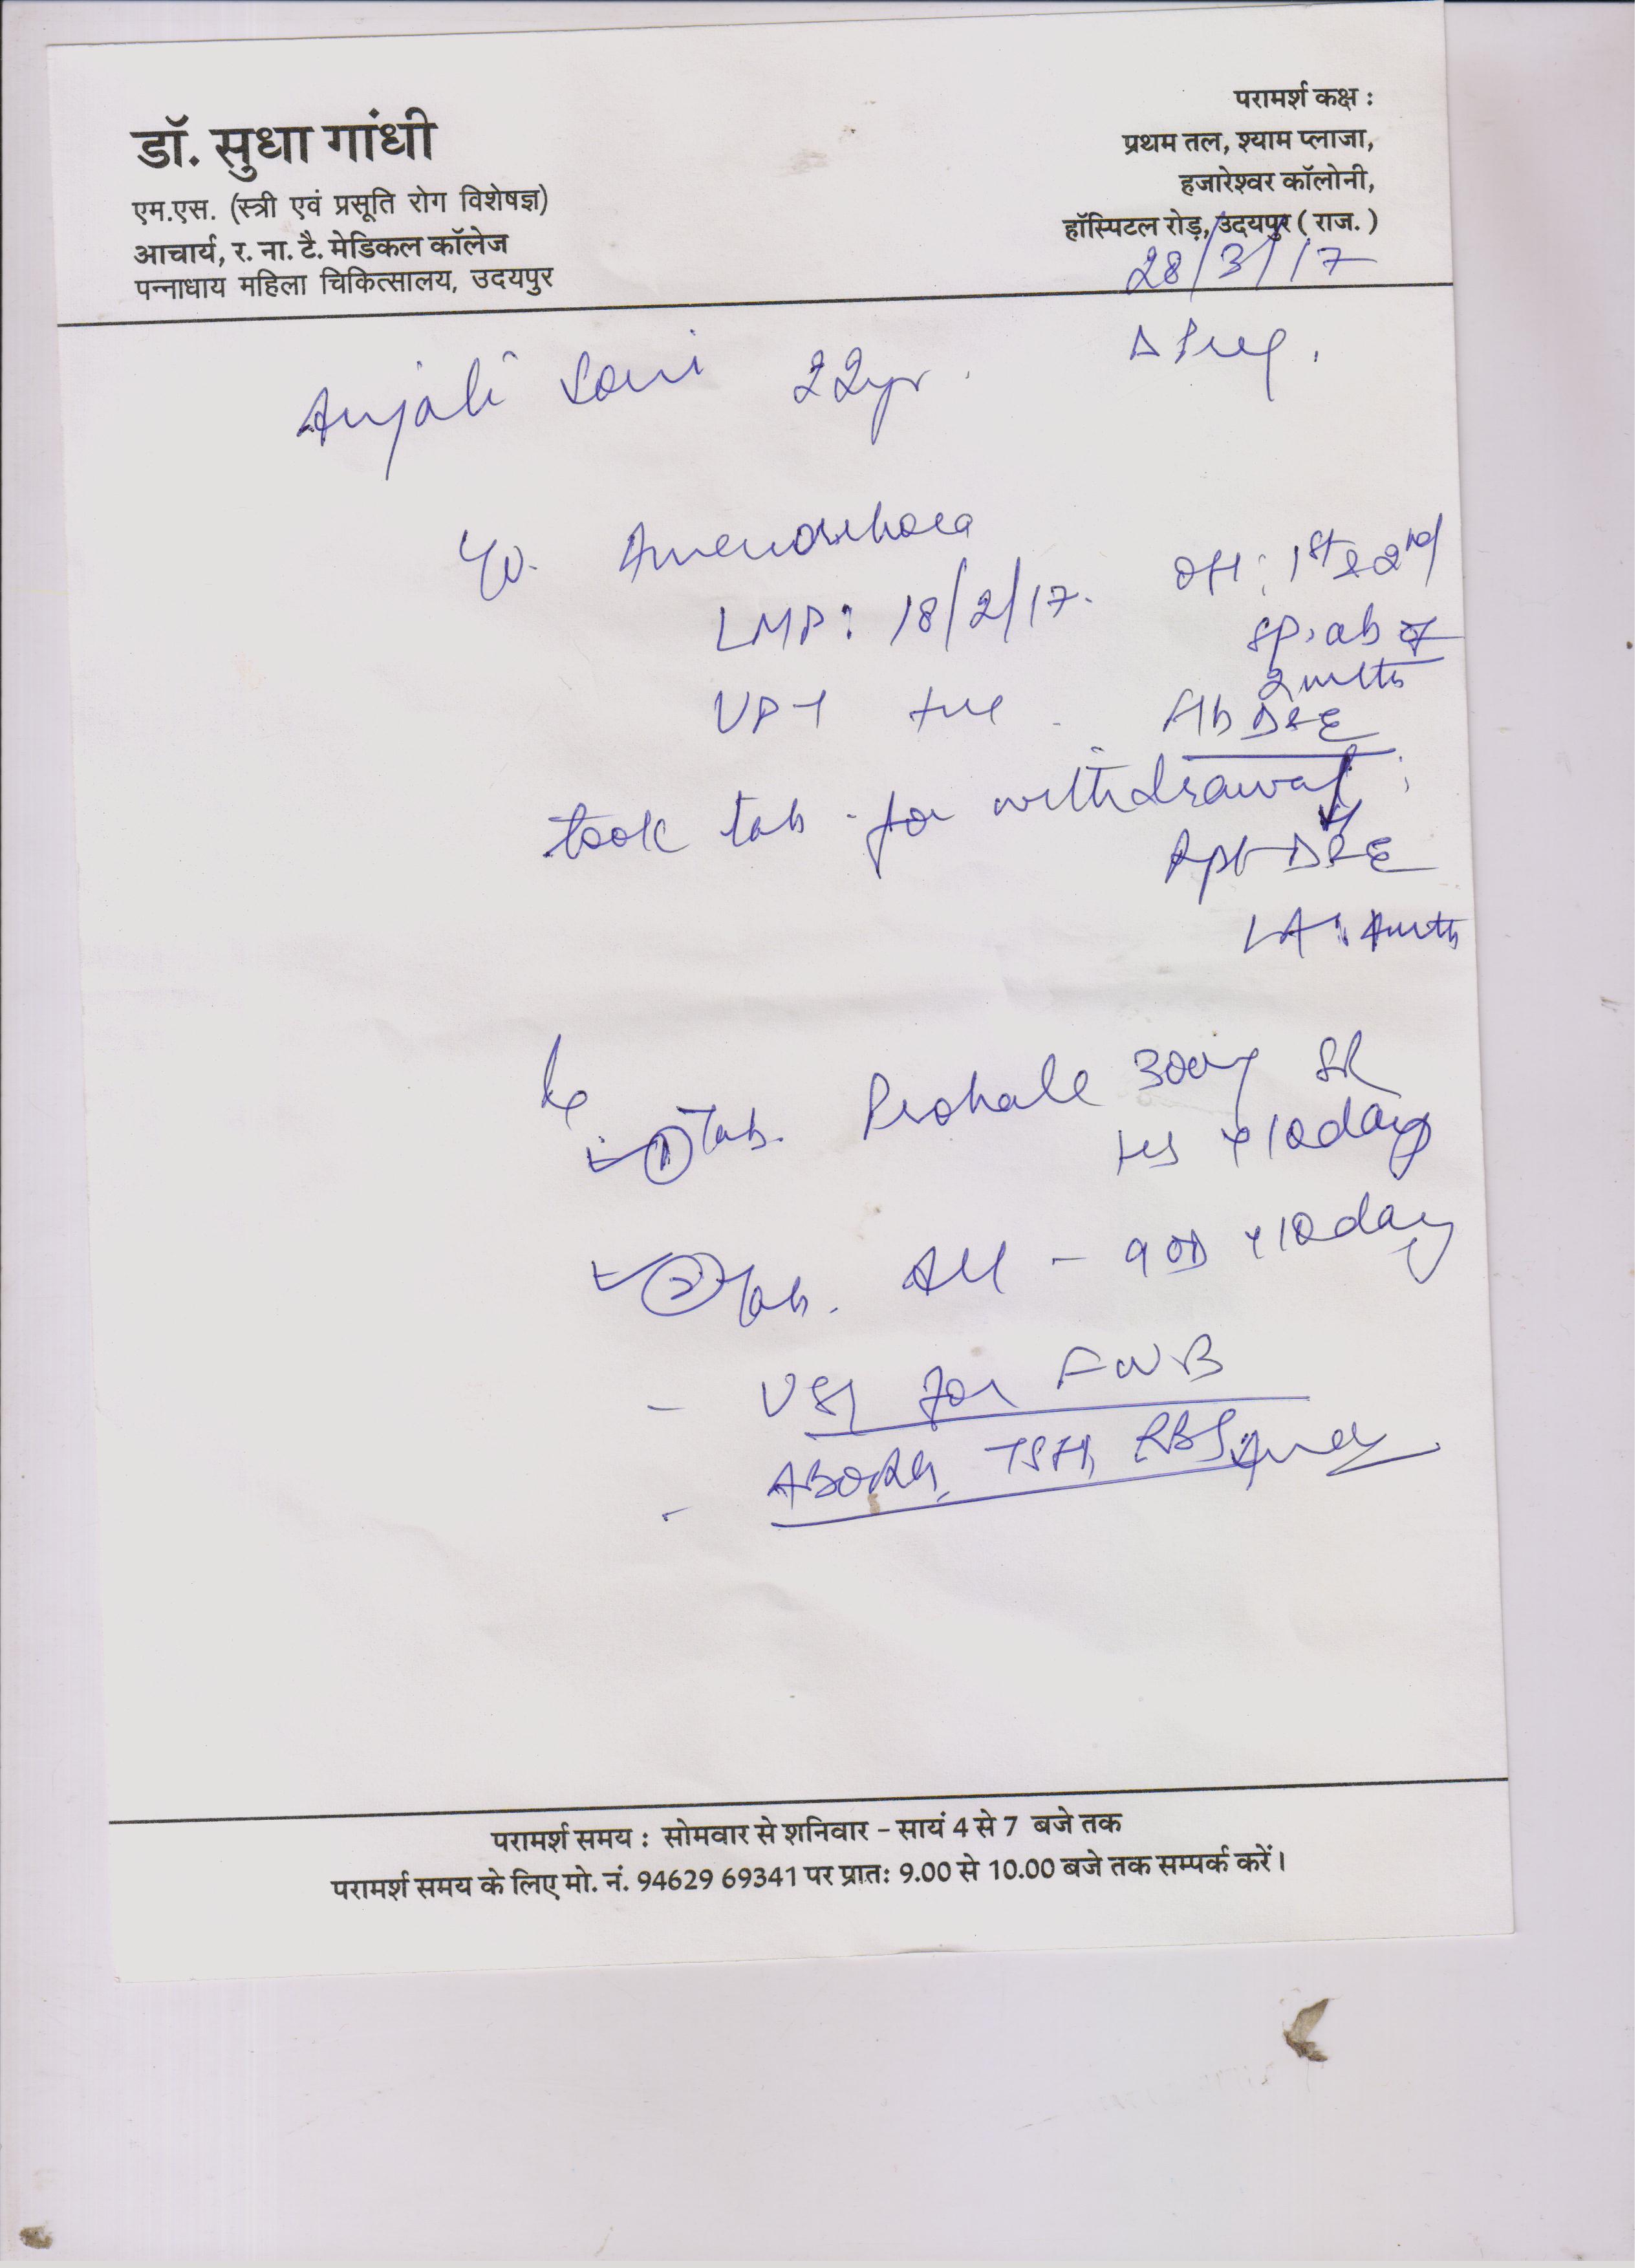 डॉ. सुधा गांधी
एम.एस. (स्त्री एवं प्रसूति रोग विशेषज्ञ)
आचार्य, र. ना. टै. मेडिकल कॉलेज
पन्नाधाय महिला चिकित्सालय, उदयपुर
परामर्श कक्ष :
प्रथम तल, श्याम प्लाजा,
हजारेश्वर कॉलोनी,
हॉस्पिटल रोड़, उदयपुर ( राज. )
28/3/17
Anjali Soni 22yr.
Δ Preg.
C/o. Amenorrhoea
LMP: 18/2/17.
UPT +ve
took tab. for withdrawal
OH: 1st & 2nd
sp. ab of
2 mth
D&E
Rpt D&E
LA: 4mth
① Tab. 300mg SR
HS x 10days
② Tab. - OD x 10day
- USG for FWB
- ABORh, TSH, RBS,
परामर्श समय : सोमवार से शनिवार - सायं 4 से 7 बजे तक
परामर्श समय के लिए मो. नं. 94629 69341 पर प्रातः 9.00 से 10.00 बजे तक सम्पर्क करें।